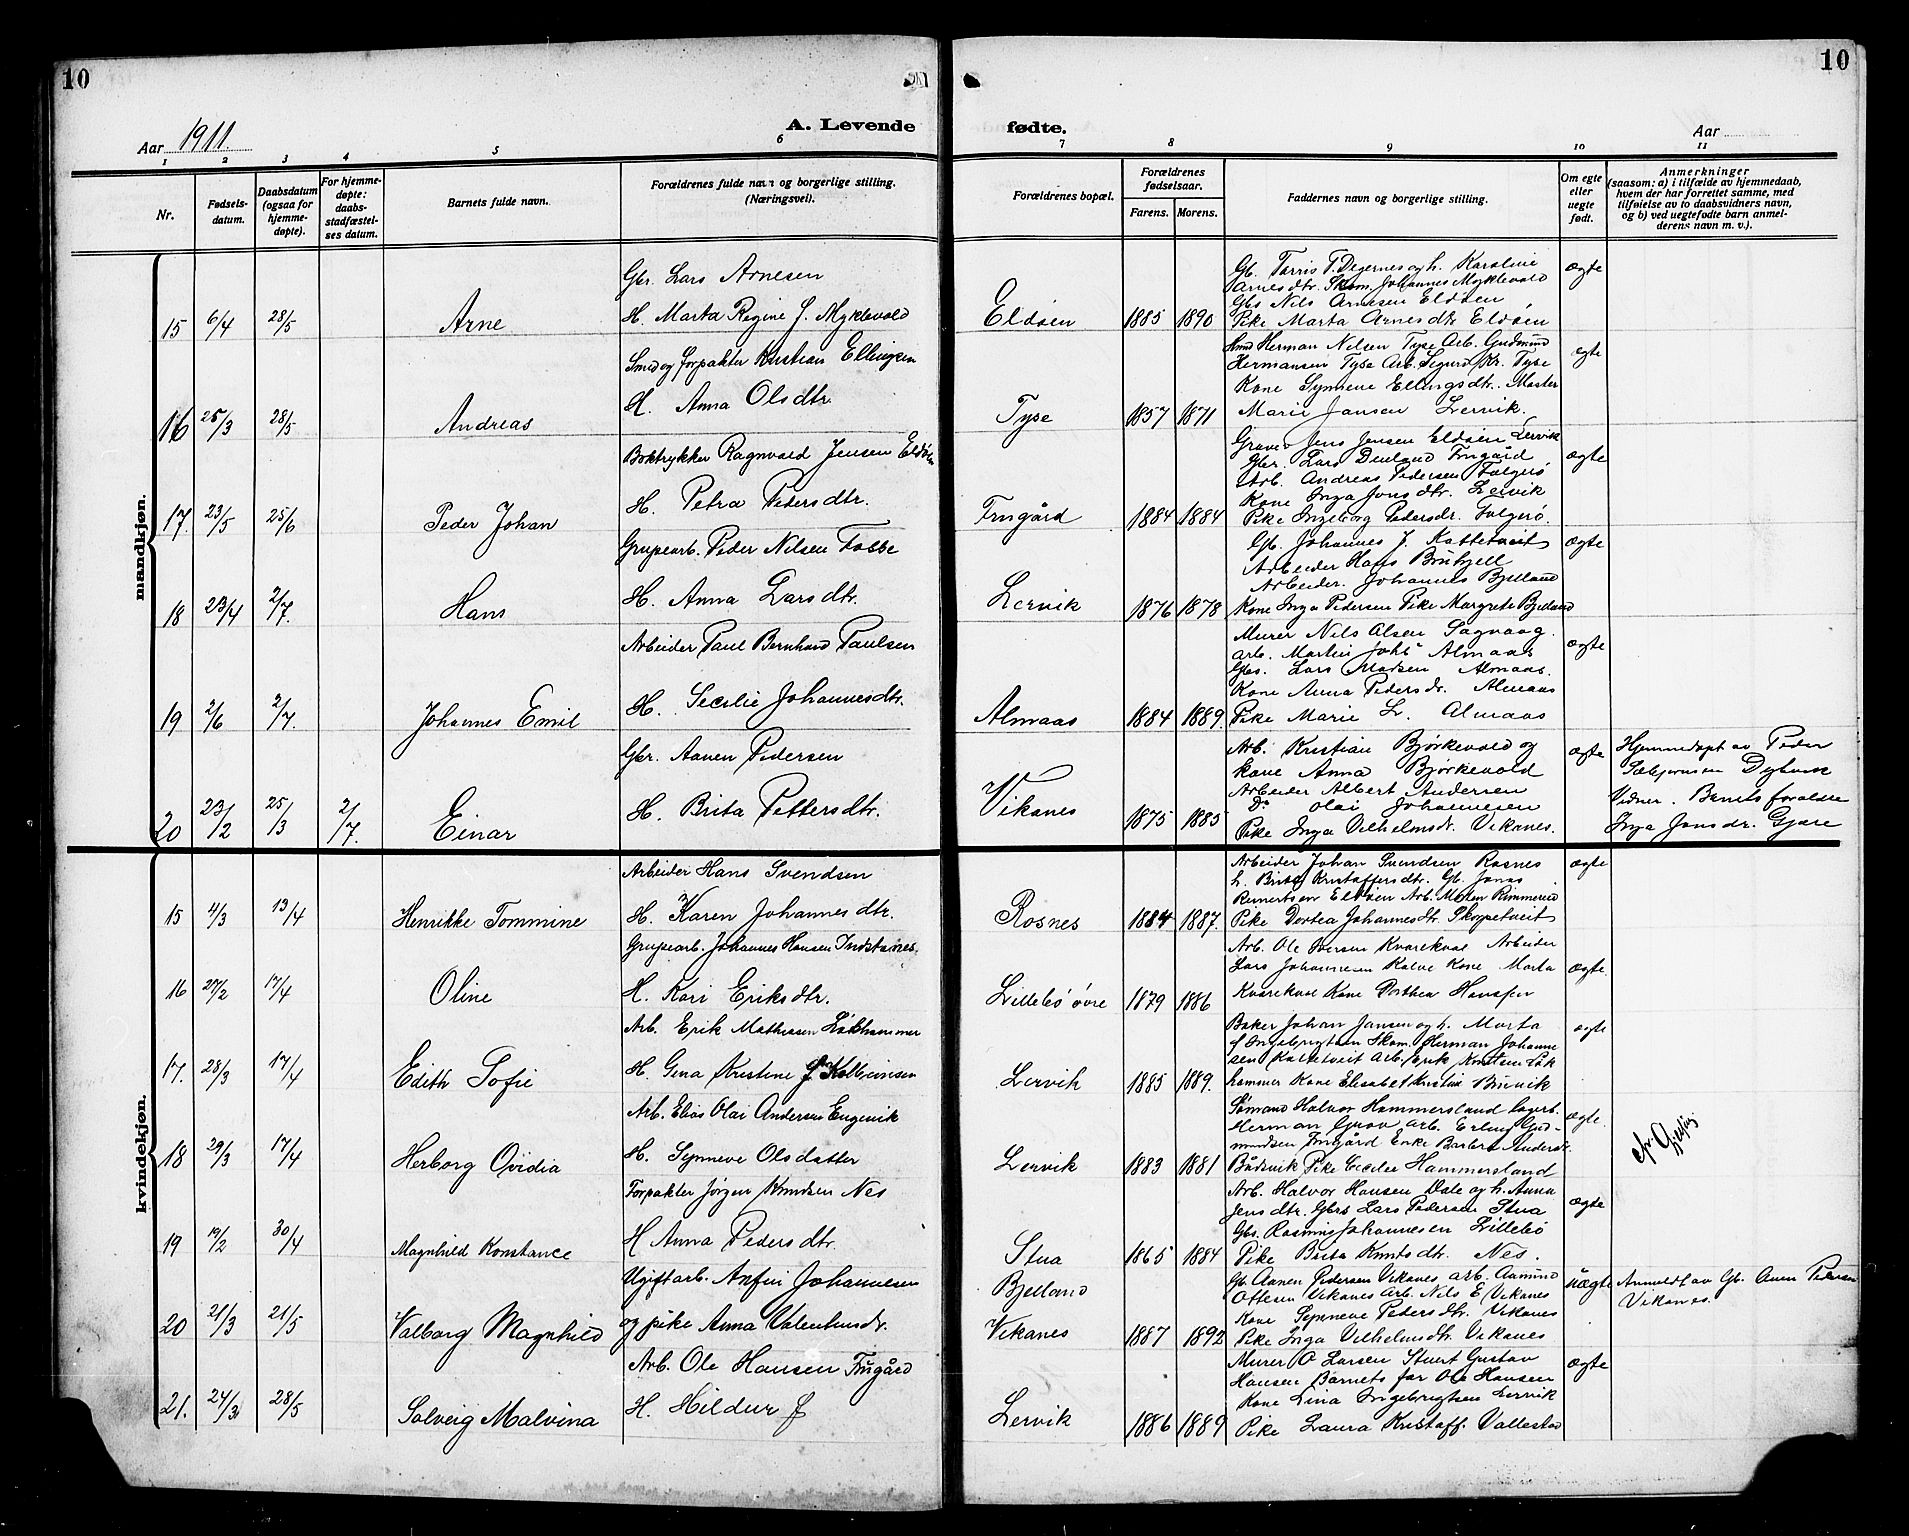 10
10
Aar 1911.
A. Levende
fødte.
Aar
1 2 3 4 5 6 7 8 9 10 11
Nr.
Fødsels-
datum.
Daabsdatum
(ogsaa for
hjemme-
døpte).
For hjemme-
døpte:
daabs-
stadfæstel-
ses datum.
Barnets fulde navn.
Forældrenes fulde navn og borgerlige stilling.
(Næringsvei).
Forældrenes bopæl.
Forældrenes
fødselsaar.
Farens. Morens.
Faddernes navn og borgerlige stilling.
Om egte
eller
uegte
født.
Anmerkninger
(saasom: a) i tilfælde av hjemmedaab,
hvem der har forrettet samme, med
tilføielse av to daabsvidners navn,
og b) ved uegtefødte barn anmel-
derens navn m. v.).
mandkjøn.
15 6/4 28/5 Arne
Gbr. Lars Arnesen
H. Marta Regine J. Myklevold
Eldøen 1885 1890
Gb. Tarris T. Degernes og h. Karoline
Arnesdtr. Skom. Johannes Myklevold
Gbs Nils Arnesen Eldøen
Pike Marta Arnesdtr Eldøen
ægte
16 25/3 28/5 Andreas
Smed og forpakter Kristian Ellingsen
H. Anna Olsdtr.
Tyse 1857 1871
Herman Nilsen Tyse Arb. Gudmund
Hermansen Tyse Arb. Sigurd Kr. Tyse
Kone Synneve Ellingsdtr. Moster
Marie Jansen Lervik.
egte
17. 23/5 25/6 Peder Johan
Boktrykker Ragnvald Jensen Eldøen
H. Petra Pedersdtr.
Frugård 1884 1884
Graver Jens Jensen Eldøen Lervik
Gbr. Lars Frugård
Arb. Andreas Pedersen Folgerø
Kone Inga Jonsdtr. Lervik
Pike Ingeborg Pedersdr. Folgerø.
ægte
18 23/4 2/7. Hans
Grupearb. Peder Nilsen Tobbe
H. Anna Larsdtr.
Lervik 1876 1878
Gb. Johannes J. Kattetveit
Arbeider Hans
Arbeider. Johannes Bjelland
Kone Inga Pedersen Pike Margrete Bjelland
ægte
19 2/6 2/7. Johannes Emil
Arbeider Paul Bernhard Paulsen
H. Secilie Johannesdtr.
Almaas 1884 1889.
Murer Nils Alsen Sagvaag.
Arb. Martin Johs Almaas
Gbs. Lars Madsen Almaas.
Kone Anna Pedersdr. Almaas
Pike Marie L. Almaas
ægte
20 23/2 25/3 2/7. Einar
Gbr. Aanen Pedersen
H. Brita Pettersdtr.
Vikanes 1875 1885
Arb. Kristian Bjørkevold og
kone Anna Bjørkevold
Arbeider Albert Andersen
Do Olai Johannesen
Pike Inga Vilhelmsdr. Vikanes.
ægte
Hjemmedøpt av Peder
Sæbjørnsen
Vidner. Barnets forældre
Inga Jonsdr. Gjøre
kvindekjøn.
15 4/3 13/4 Henrikke Tommine
Arbeider Hans Svendsen
H. Karen Johannesdtr.
Rosnes 1884 1887.
Arbeider Johan Svendsen Rosnes
h. Brita Kristoffersdtr. Gb. Jonas
Reinertsen Eldøen Arb. Morten Rimmereid
Pike Dortea Johannesdtr. Skogetveit
ægte
16 27/2 17/4 Oline
Grupearb. Johannes Hansen Indstænes
H. Kari Eriksdtr.
Lillebø øvre 1879 1886
Arb. Ole Iversen Kvarekval Arbeider
Lars Johannesen Kalve Kone Marta
Kvarekval Kone Dorthea
ægte
17. 28/3 17/4 Edith Sofie
Arb. Erik Mathiasen Løkhammer
H. Gena Kristine f. Kolbeinsen
Lervik 1885 1889.
Baker Johan Jansen og h. Marta
f. Ingebrigtsen Skom. Herman Johanne
sen Kattetveit Arb. Erik Knutsen Løk
hammer Kone Elisabet Kristin
ægte
18 29/3 17/4 Herborg Ovidia
Arb. Elias Olai Andersen Engevik
H. Synneve Olsdatter
Lervik 1883 1881
Sømand Halvor Hammersland
Herman Arb. Erling Gud-
mundsen Frugård Enke Barbra Andersdr.
Bådsvik Pike Cecilie Hammersland
ægte.
19 19/2 30/4 Magnhild Konstance
Forpakter Jørgen Knudsen Nes
H Anna Pedersdtr.
Stua 1865 1884
Arb. Halvor Hansen Dale og h. Anna
Jensdtr. Gbrs Lars Pedersen Stua
Gbs. Rasmus Johannesen Lillebø
Pike Brita Knutsdtr. Nes.
ægte
20 21/3 21/5 Valborg Magnhild
Ugift arb. Anfin Johannesen
og pike Anna Valentinsdr.
Bjelland
Vikanes 1887 1892
Gb. Aanen Pedersen Vikanes Arb. Aamund
Ottesen Vikanes Arb. Nils E Vikanes
Kone Synneve Pedersdtr. Vikanes
Pike Inga Vilhelmsdtr. Vikanes
uægte
Anmeldt av Gb. Anen Pedersen
Vikanes.
21. 24/3 28/5 Solveig Malvina
Arb. Ole Hansen Frugård
H. Hildur J
Lervik 1886 1889
Murer O Larsen Stuert Gustav
Hansen Barnets far Ole Hansen
Kone Lina Ingebrigtsen Lervik
Pike Laura Kristoff. Vallestad
ægte